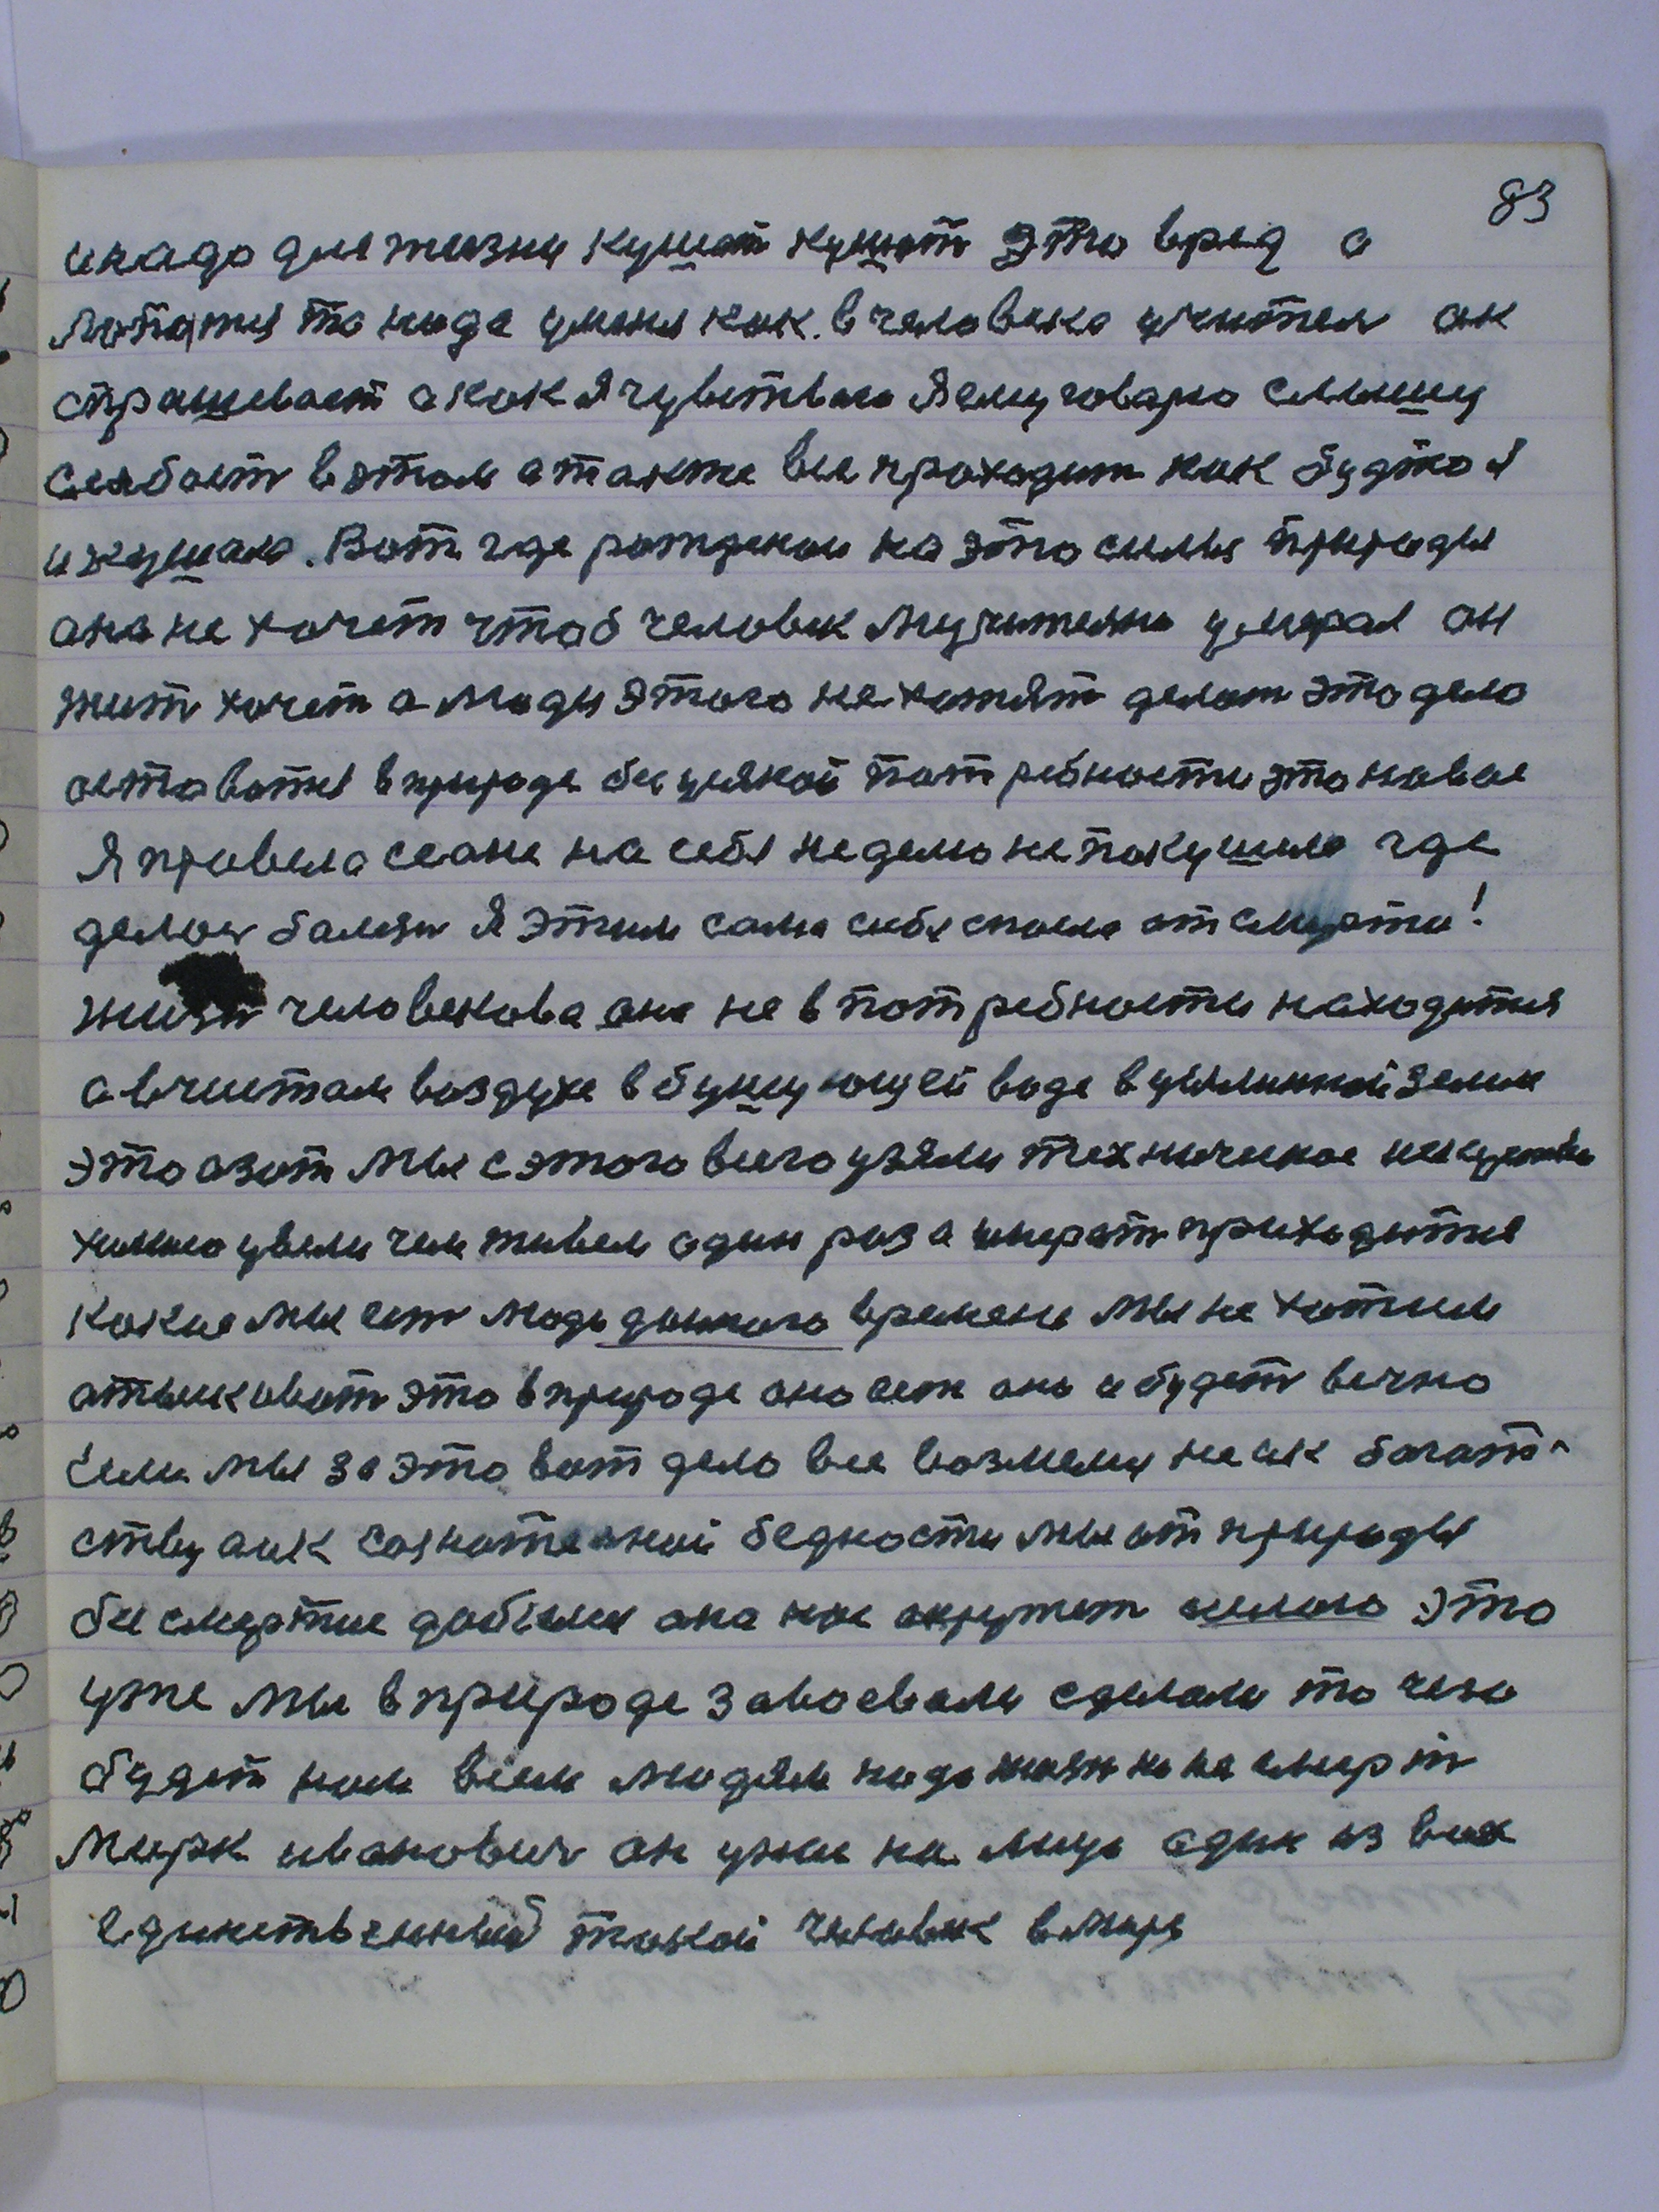 83
инадо для жизни кушат кушат это вред а
лопатия то нада уменя как в человека учится ак
спрашевает а как я чувствою я ему говарю слышу
слабост вэтом атакже все проходит как будто я
и кушаю. Вот где рождении на это силы природы
ана не хочет чтоб человек мучително умерал он
жит хочет а люди этого не хотят делат это дело
аставатця в природе без усякой патребности это новае
я правела сеанс на себя неделю не покушила где
делас балезн я этим сама себя спасла от смерти!
жизн человекова ана не в потребности находится
а вчистом воздухе в бушующей воде в усыпиной земли
это азот мы с этого всего узяли техническое искуство
химию увели чем живем один раз а умерат приходится
какие мы ест люди даннаго времени мы не хотим
атыскиват это в природе оно ест оно и будет вечно
если мы за это вот дело все возмемся не ик багат-
ству аик сазнателной бедности мы от природы
бесмертие добемся ана нас окружет силою это
уже мы в природе завоевали сделали то чего
будет нам всем людям надо жизн но не смерт
Мирк иванович он ужи на лицо адин из всех
единственный такой человек вмире